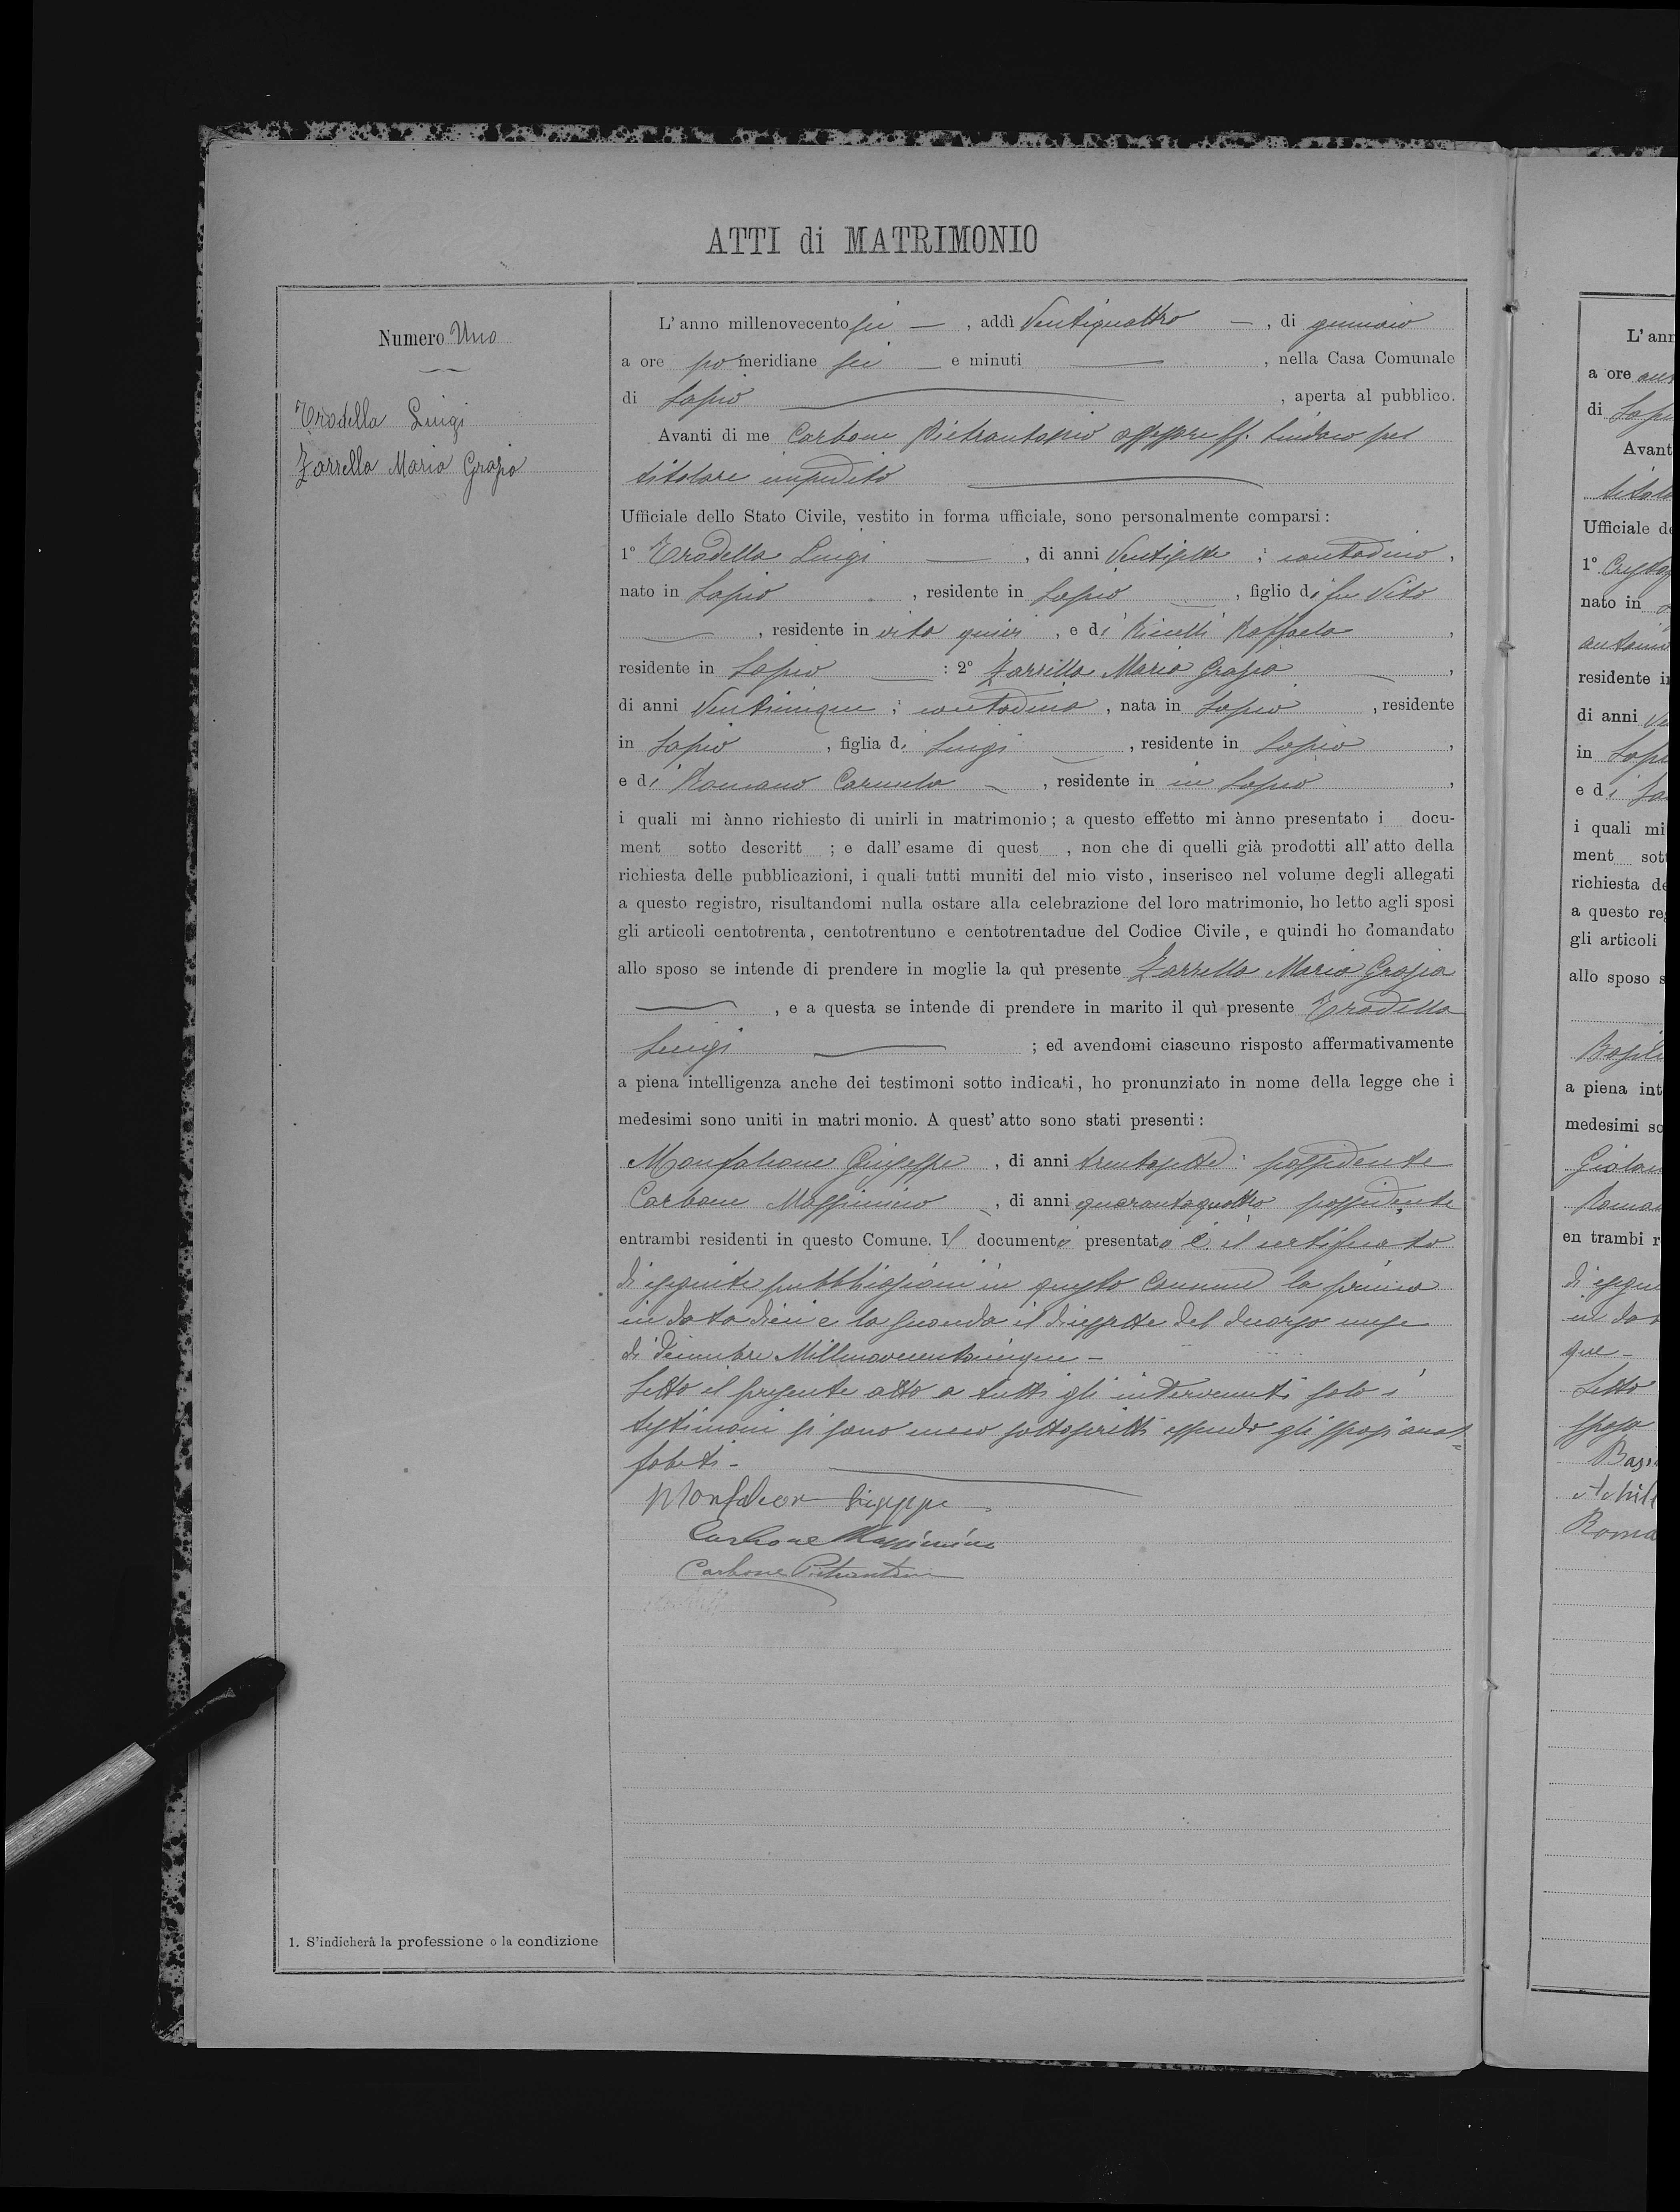 ATTI di MATRIMONIO
Numero Uno
Trodella Luigi
Zarrella Maria Grazia
L'anno millenovecento sei — , addì Ventiquattro — , di gennaio
a ore po meridiane sei — e minuti — , nella Casa Comunale
di Lapio — , aperta al pubblico.
Avanti di me Carbone Pietrantonio assessore ff. Sindaco pel
titolare impedito
Ufficiale dello Stato Civile, vestito in forma ufficiale, sono personalmente comparsi :
1° Trodella Luigi — , di anni Ventisette ; contadino ,
nato in Lapio , residente in Lapio , figlio di fu Vito
— , residente in vita quivi , e di Ricelli Raffaela ,
residente in Lapio — : 2° Zarrella Maria Grazia — ,
di anni Venticinque ; contadina , nata in Lapio , residente
in Lapio , figlia di Luigi , residente in Lapio ,
e di Romano Carmela , residente in in Lapio ,
i quali mi ànno richiesto di unirli in matrimonio ; a questo effetto mi ànno presentato i docu-
ment sotto descritt ; e dall' esame di quest , non che di quelli già prodotti all' atto della
richiesta delle pubblicazioni, i quali tutti muniti del mio visto, inserisco nel volume degli allegati
a questo registro, risultandomi nulla ostare alla celebrazione del loro matrimonio, ho letto agli sposi
gli articoli centotrenta, centotrentuno e centotrentadue del Codice Civile, e quindi ho domandato
allo sposo se intende di prendere in moglie la quì presente Zarrella Maria Grazia
— , e a questa se intende di prendere in marito il quì presente Trodella
Luigi — ; ed avendomi ciascuno risposto affermativamente
a piena intelligenza anche dei testimoni sotto indicati, ho pronunziato in nome della legge che i
medesimi sono uniti in matri monio. A quest' atto sono stati presenti :
Monfalcone Giuseppe , di anni trentasette : possidente
Carbone Massimino , di anni quarantaquattro possidente
entrambi residenti in questo Comune. Il documento presentato è il certificato
di eseguite pubblicazioni in questo Comune la prima
in data dieci e la seconda il diciassette del decorso mese
di Dicembre Millenovecentocinque –
Letto il presente atto a tutti gli intervenuti solo i
testimoni si sono meco sottoscritti essendo gli sposi anal=
fabeti –
Monfalcon Giuseppe
Carbone Massimino
Carbone Pietrantonio
1. S'indicherà la professione o la condizione
L' ann
a ore
di Lapi
Avant
titola
Ufficiale de
1°
nato in
antonio
residente i
di anni
in Lapi
e di
i quali mi
ment sot
richiesta de
a questo re
gli articoli
allo sposo s
Basile
a piena int
medesimi so
Roman
en trambi r
di esegui
in dat
que –
Letto
sposo
Basi
Achill
Roma